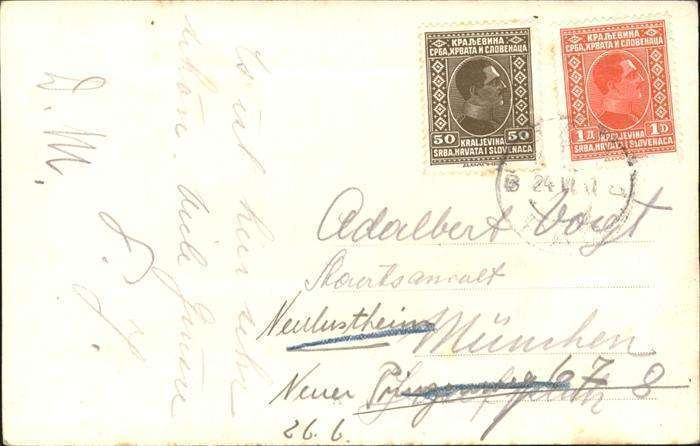 КРАЉЕВИНА
СРБА, ХРВАТА И СЛОВЕНАЦА
50 50
KRALJEVINA
SRBA, HRVATA I SLOVENACA
КРАЉЕВИНА
СРБА, ХРВАТА И СЛОВЕНАЦА
1 Д 1 D
KRALJEVINA
SRBA, HRVATA I SLOVENACA
24
Es ist hier sehr
schön. Viele Grüsse
D. M.
Adalbert Voigt
Staatsanwalt
Neulustheim
München
Neuer
8
26.6.